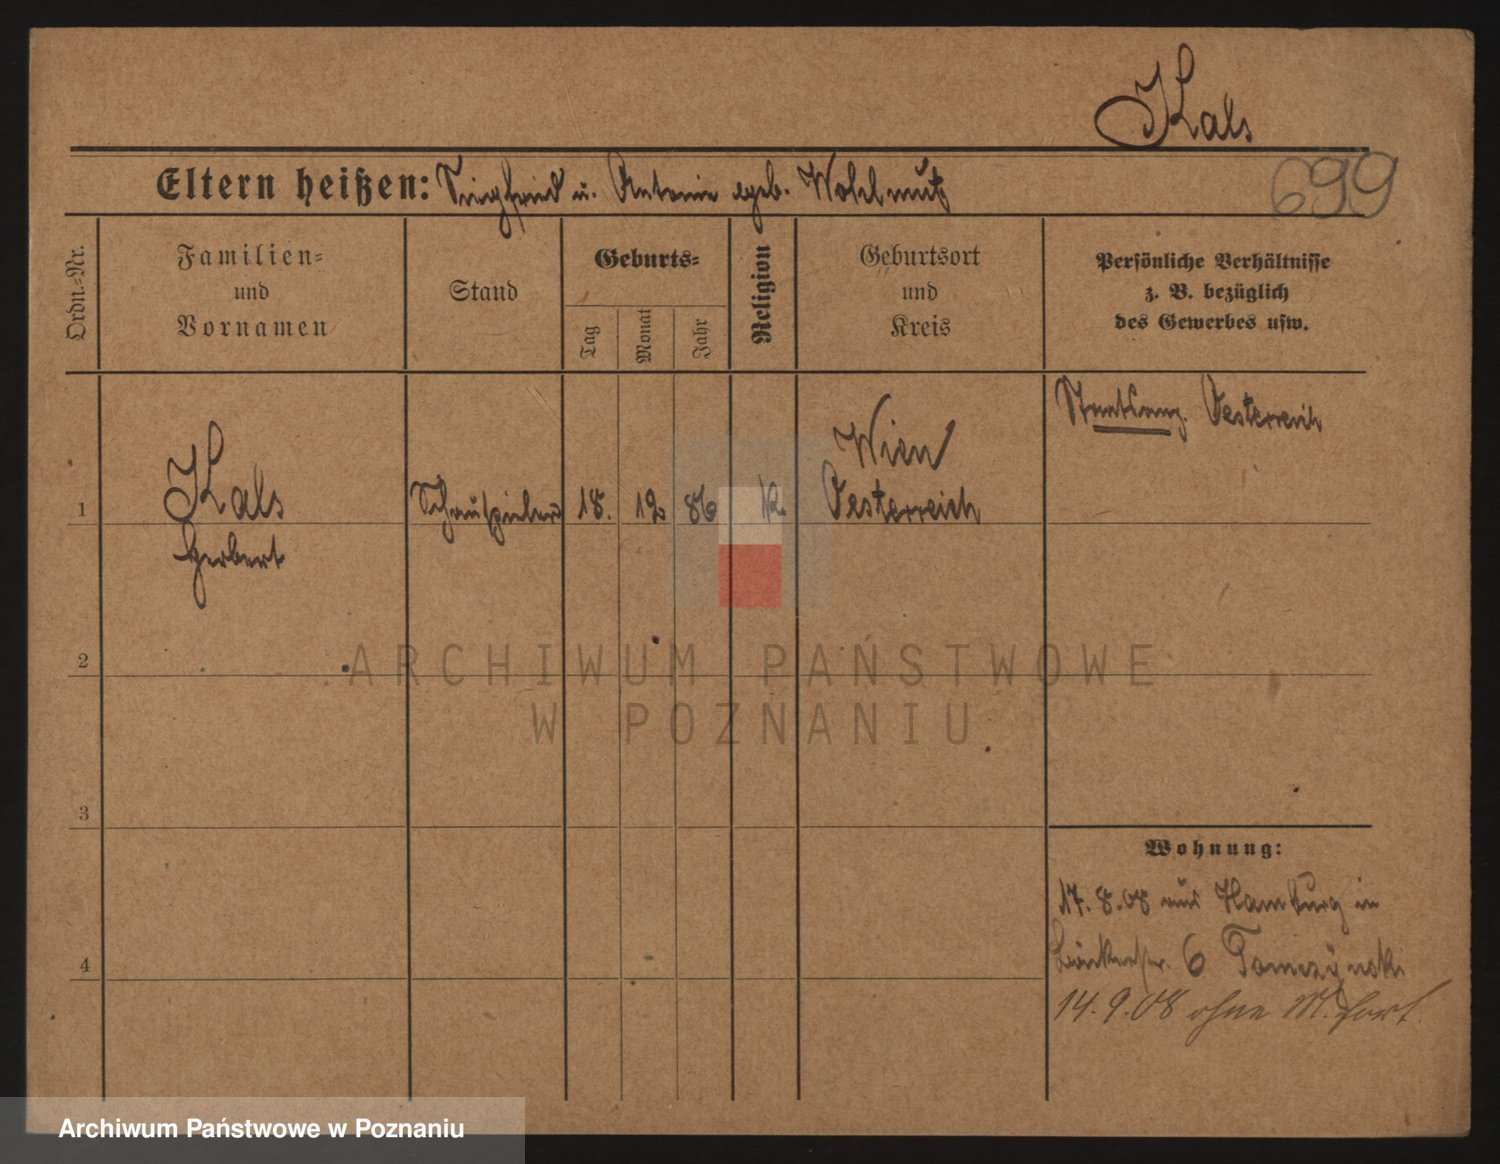 Kals
Eltern heißen: Siegfried u. Antonie geb. Wohlmuth
699
Ordn.=Nr.
Familien=
und
Vornamen
Stand
Geburts=
Tag
Monat
Jahr
Religion
Geburtsort
und
Kreis
Persönliche Verhältnisse
z. B. bezüglich
des Gewerbes usw.
Staatsang. Oesterreich
1
Kals
Herbert
Schauspieler
18.
12.
86
k.
Wien
Oesterreich
2
3
4
Wohnung:
17.8.08 aus Hamburg in
6
14.9.08 ohne M. fort.
ARCHIWUM PAŃSTWOWE
W POZNANIU
Archiwum Państwowe w Poznaniu